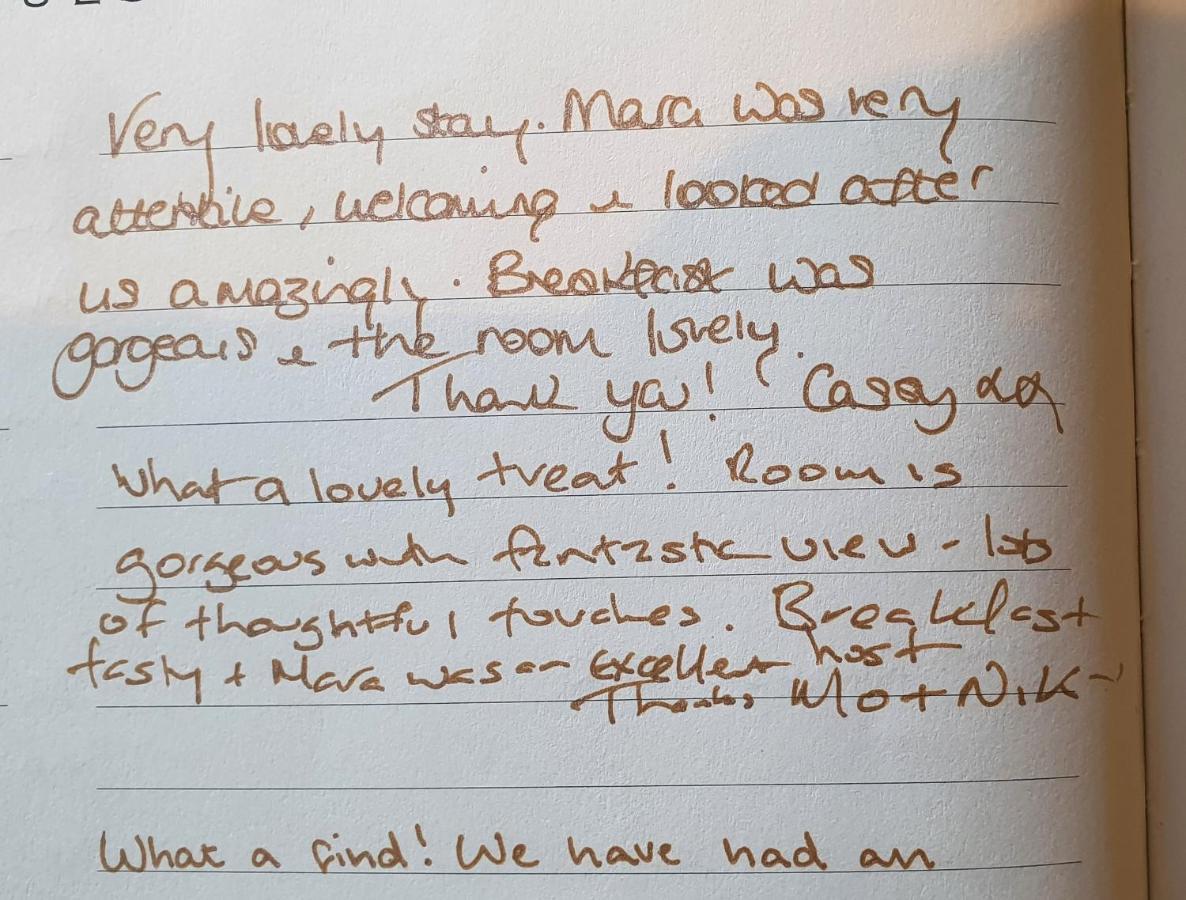 Very lovely stay. Mara was very
attentive, welcoming & looked after
us amazingly. Breakfast was
gorgeous & the room lovely.
Thank you! Casey xx
What a lovely treat! Room is
gorgeous with fantastic view - lots
of thoughtful touches. Breakfast
tasty + Mara was an excellent host
Thanks Mo + Nik
What a find! We have had an